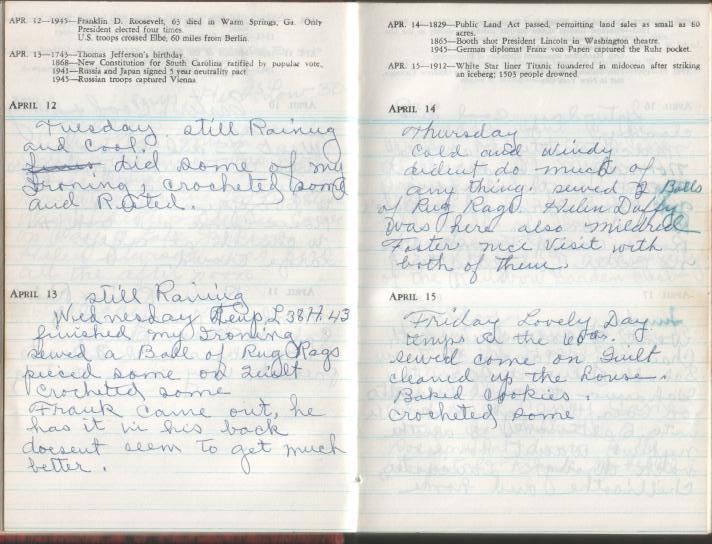 APR. 12—1945—Franklin D. Roosevelt, 63 died in Warm Springs, Ga. Only
President elected four times.
U.S. troops crossed Elbe, 60 miles from Berlin.
APR. 13—1743—Thomas Jefferson's birthday.
1868—New Constitution for South Carolina ratified by popular vote.
1941—Russia and Japan signed 5 year neutrality pact
1945—Russian troops captured Vienna.
APRIL 12
Tuesday, still Raining
and Cool.
did some of my
Ironing, crocheted some
and Rested.
APRIL 13
still Raining
Wednesday Temp L 38 H. 43
finished my Ironing
sewed a Ball of Rug Rags
pieced some on Quilt
Crocheted some
Frank came out, he
has it in his back
doesent seem to get much
better.
APR. 14—1829—Public Land Act passed, permitting land sales as small as 80
acres.
1865—Booth shot President Lincoln in Washington theatre.
1945—German diplomat Franz von Papen captured the Ruhr pocket.
APR. 15—1912—White Star liner Titanic foundered in midocean after striking
an iceberg; 1503 people drowned.
APRIL 14
Thursday
Cold and Windy
didient do much of
any thing. sewed 2 Balls
of Rug Rags. Helen Duffy
was here also mildred
Foster nice Visit with
both of them.
APRIL 15
Friday Lovely Day
temps in the 60ths.
sewed some on Quilt
cleaned up the house.
Baked Cookies.
Crocheted some